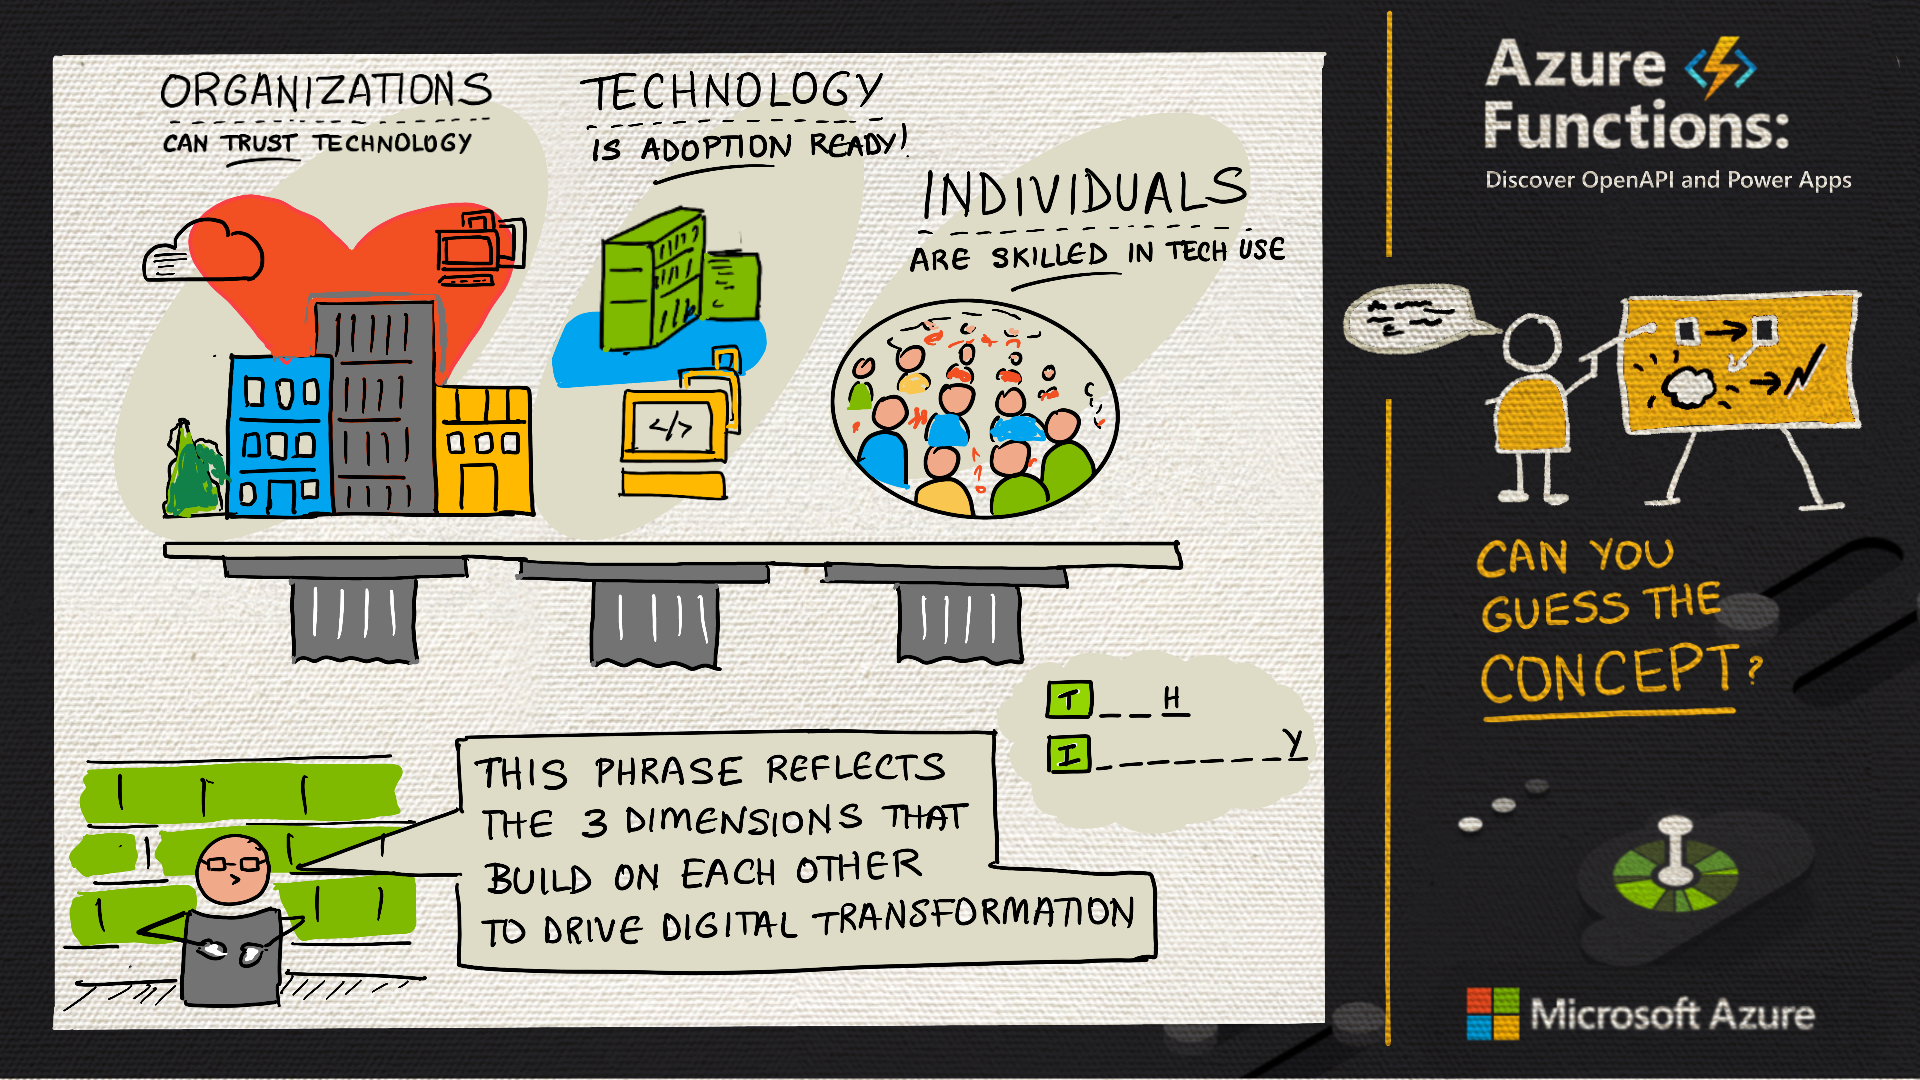 ORGANIZATIONS
CAN TRUST TECHNOLOGY
TECHNOLOGY
IS ADOPTION READY!
INDIVIDUALS
ARE SKILLED IN TECH USE
</>
T _ _ H
I _ _ _ _ _ _ _ Y
THIS PHRASE REFLECTS
THE 3 DIMENSIONS THAT
BUILD ON EACH OTHER
TO DRIVE DIGITAL TRANSFORMATION
Azure
Functions:
Discover OpenAPI and Power Apps
CAN YOU
GUESS THE
CONCEPT?
Microsoft Azure